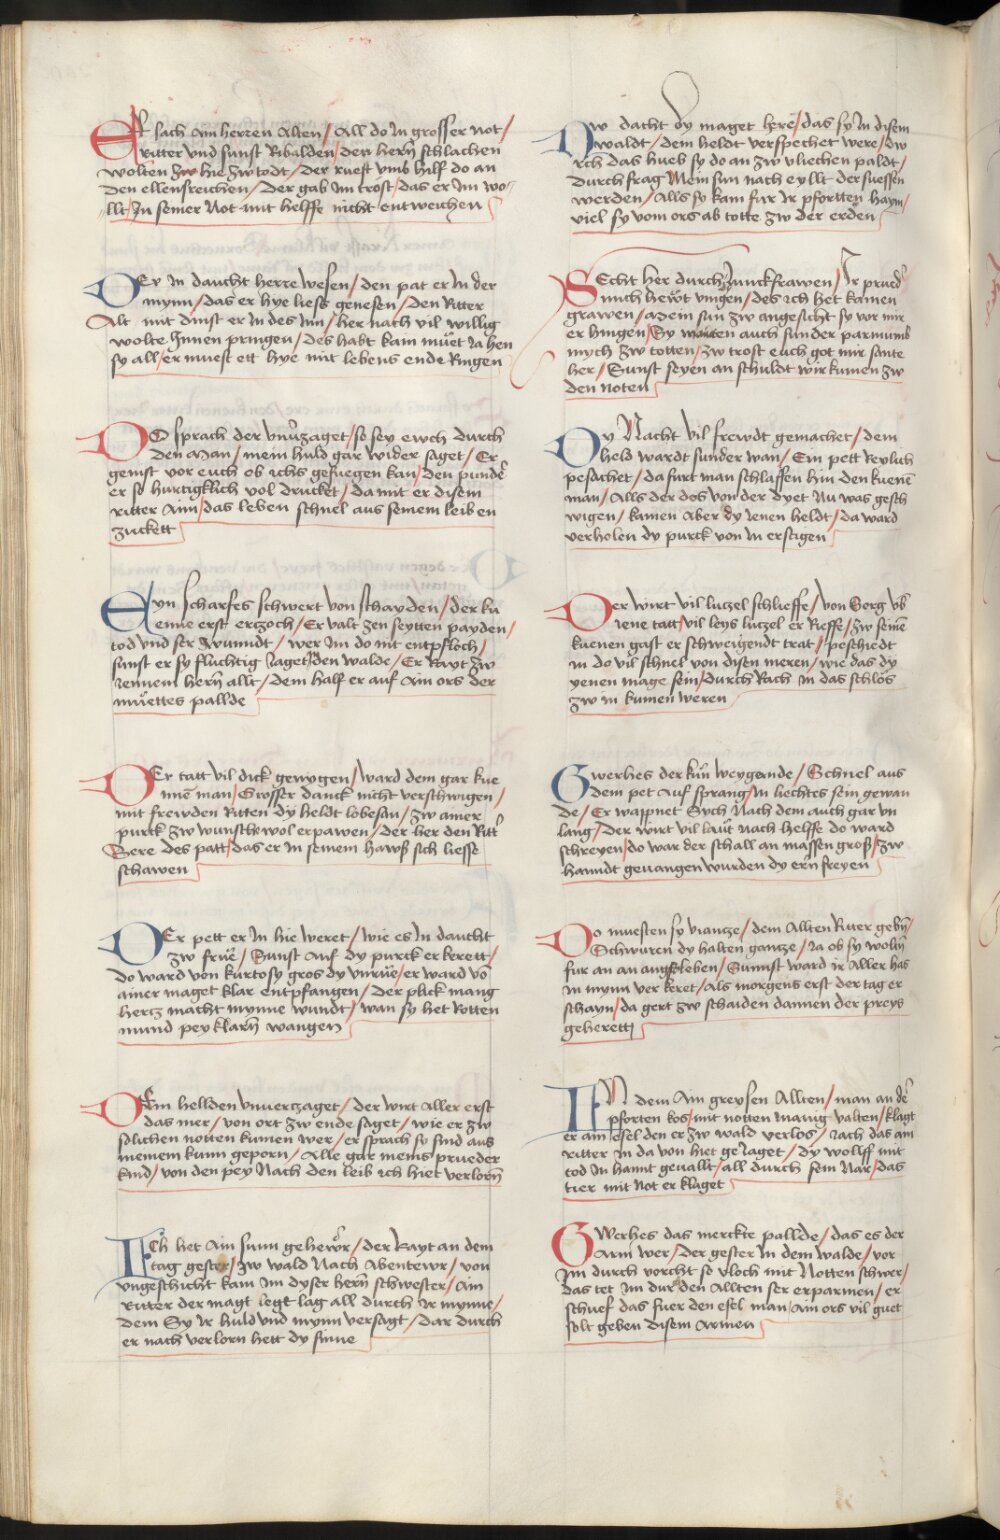 Er sach ain herren Alten / All do In grosser not /
ritter vnd sunst Ribalden / den herñ schlachen
wolten zw hie zw todt / der rueft vmb hilf do an
den ellensreichen / Der gab Im trost / das er Im wo-
llt In seiner Not mit helffe nicht entweichen
DEr In daucht herre wesen / den pat er In der
mynn / das er hye liess genesen / Den Ritter
Alt mit dinst er In des Inn / her nach vil willig
wolte Innen pringen / Des habt kain müet Ja hen
sy all / er muest ett hye mit lebens ende Ringen
DO sprach der vnuerzaget / so sey ewch durch
den Man / mein huld gar wider saget / Er
genist vor euch ob ichs gefuegen kan / den punder
er so hurtigklich vol drucket / da mit er disem
ritter Ainn / das leben schnel aus seinem leib en
zuckett
Eyn scharfes schwert von schayden / der ku
enne erst erczoch / Er valt zen seytten payden /
tod vnd ser Wunndt / wer Im do nit entpfloch /
sunst er sy fluchtig Jaget / den walde / Er Rayt zw
Jennem herñ allt / dem half er auf Ain ors der
müettes pallde
DEr tatt vil dick genygen / ward dem gar kue
nne man / Grosser danck nicht verschwigen /
mit frewden Ritten dy heldt lobesan / zw ainer
purck zw wunsche wol erpawen / der her den Ritt
Sere des patt / das er In seinem hawß sich liesse
schawen
DEr pett er In hie weret / wie es In daucht
zw frue / Sunst Auf dy purck er kerett /
do ward von kurtosy gros dy vnrue / er ward võ
ainer maget klar entpfangen / Der plick mang
hercz macht mynne wundt / wan sy het Rotten
mund pey klarñ wangen
Dem hellden vnuerczaget / der wirt Aller erst
das mer / von ort zw ende saget / wie er zw
solichen notten kumen wer / er sprach sy sind aus
meinem kunn geporn / Alle gar meins prueder
kind / von den pey Nach den leib ich hiet verlorñ
ICh het Ain sunn gehewr / der Rayt an dem
tag gester / zw wald Nach Abentewr / von
vngeschicht kam Im dyser herñ schwester / Ain
Ritter der magt legt lag all durch Ir mynne /
dem Sy Ir huld vnd mynn versagt / dar durch
er nach verlorn hett dy sinne
Dw dacht dy maget here / das sy In disem
waldt / dem heldt verspechet were / dw
rch das hueb sy do an zw vliechen paldt /
durch frag Mein sun nach eyllt der suessen
werden / Alls sy kam fur Ir pfortten haym /
viel sy vom ors ab totte zw der erden
SEcht her durch Junckfrawen / Ir prueder
mich hewt viengen / des ich het kainen
grawen / Mein sun zw angesicht sy vor mir
er hingen / Sy maiten auch sunder parmumb
mych zw totten / zw trost euch got mir sante
her / Sunst seyen an schuldt wir kumen zw
den noten
Dy Nacht vil frewdt gemachet / dem
held wardt sunder wan / Ein pett Reylich
pesachet / da furt man schlaffen hin den kuenẽ
man / Alls der dos von der dyet Nu was gesch
wigen / kamen Aber dy Jenen heldt / da ward
verholen dy purck von In erstigen
Der wirt vil luczel schlieffe / von Sorg vb
iene tatt / vil leys luczel er Rieffe / zw seinẽ
kuenen gast er schweigendt tratt / peschiedt
in do vil schnel von disen meren / wie das dy
yenen mage sein / durch Rach in das schlos
zw in kumen weren
Gwerhes der kun weygande / Schnel aus
dem pet Auf sprang / In liechtes sein gewan
de / Er wapnet Sych Nach dem auch gar vn
lang / Der wirt vil laut nach helffe do ward
schreyen / do war der schall an massen groß / zw
hanndt geuangen wurden dy erñ freyen
Do muesten sy viancze / dem Allten Ritter gebñ /
Schwuren dy halten gancze / Ja ob sy wolñ
fur an an angst leben / Sunnst ward ir Aller has
In mynn ver keret / Als morgens erst der tag er
schayn / da gert zw schaiden dannen der preys
geherett
IN dem Ain greysen Allten / man an der
pforten kos / mit notten manig valten / klagt
er ain esel den er zw wald verlos / Nach das ain
ritter In da von hiet geJaget / dy wollff mit
tod In hannt geuallt / all durch sein Nar / das
tier mit Not er klaget
GWerhes das merckte pallde / das es der
Arm wer / Der gester In dem walde / vor
Im durch vorcht so vloch mit Notten schwer /
das tet Im durch den Allten ser erparmen / er
schuef das fuer den esel man / Ain ors vil guet
solt geben disem Armen